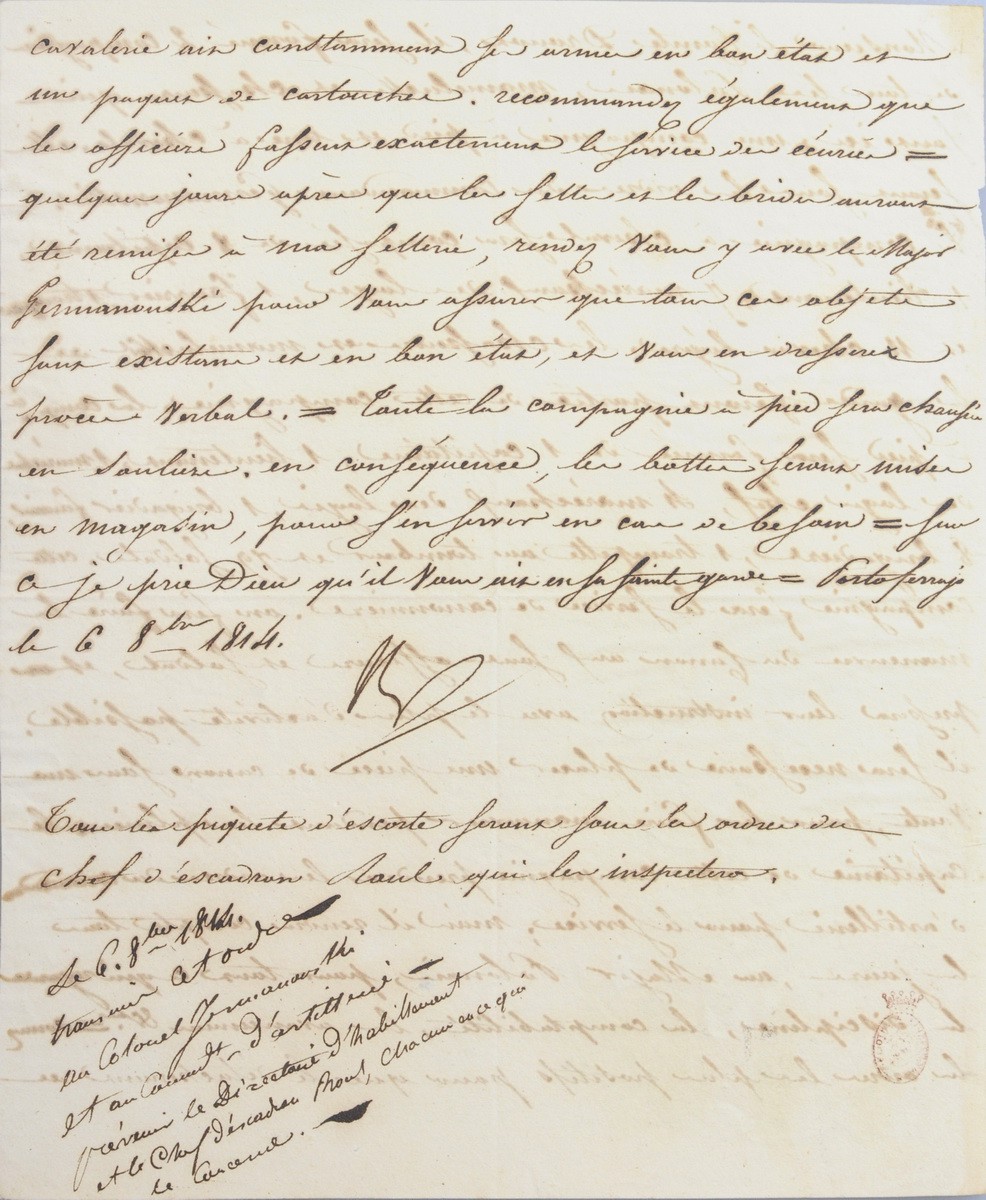 cavalerie ait constamment ses armes en bon état et
un paquet de cartouches. recommandez également que
les officiers fassent exactement le service des écuries =
quelques jours après que les selles et les brides auront
été remises à ma sellerie, rendez Vous y avec le Major
Germanouski pour Vous assurer que tous ces objets
sont existans et en bon état, et Vous en dresserez
procès Verbal. = Toute la compagnie à pied sera chaussée
en souliers. en conséquence, les bottes seront mises
en magasin, pour s'en servir en cas de besoin = sur
ce je prie Dieu qu'il Vous ait en sa sainte garde = Portoferrajo
le 6 8bre 1814.
Tous les piquets d'escorte seront sous les ordres du
chef d'éscadron Raul qui les inspectera.
Le 6. 8bre 1814.
transmis cet ordre
au Colonel Jermanouski.
et au Commdt d'artillerie
prévenir le Directeur d'habillement
et le Chef d'éscadron Raoul, chacun en ce qui
le concerne.